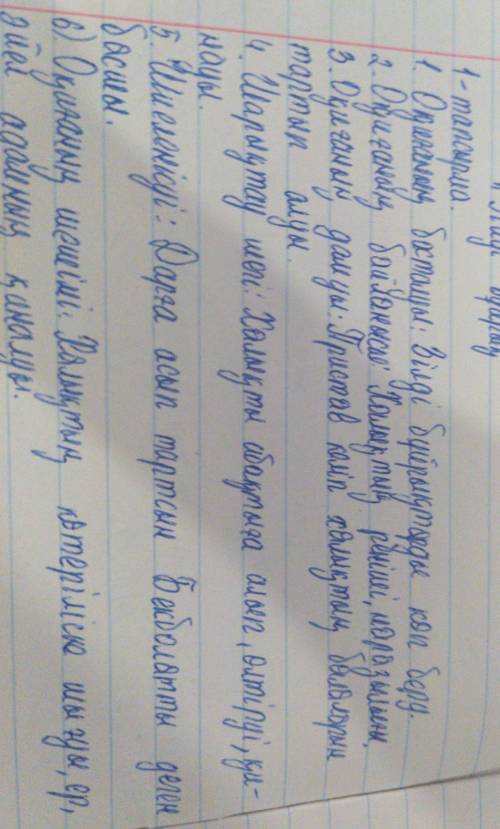 1-тапсырма.
1. Оқиғаның басталуы: Әділ бұйрықтарды көп беру.
2. Оқиғаның байланысы: Халықтың реніші, наразылығы.
3. Оқиғаның дамуы: Пристав келіп халықтың балаларын
тартып алуы.
4. Шарықтау шегі: Халықты абақтыға алып, өлтіруі, қи-
науы.
5. Шиеленісуі: Дарға асып тартсын Бекболатты деген
босшы.
6) Оқиғаның шешімі: Халықтың көтеріліске шығуы, ер,
әйел адамның қаналуы.